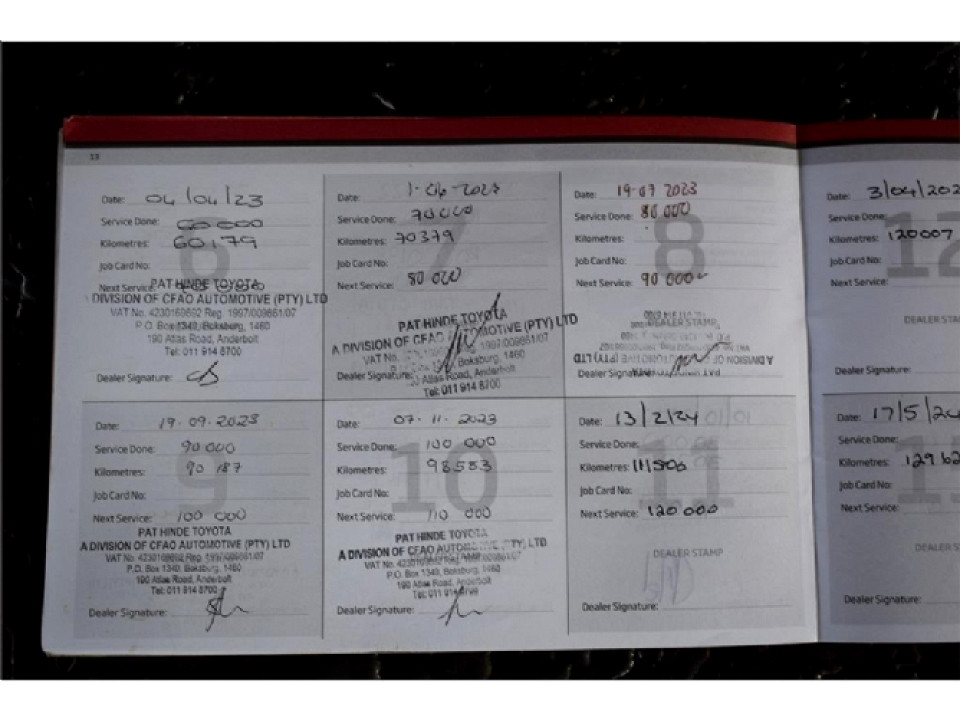 13
Date: 04/04/23
Service Done: 60000
Kilometres: 60179
Job Card No:
Next Service:
PAT HINDE TOYOTA
A DIVISION OF CFAO AUTOMOTIVE (PTY) LTD
VAT No. 4230169802 Reg. 1997/009861/07
P.O. Box 1340, Boksburg, 1460
190 Atlas Road, Anderbolt
Tel: 011 914 8700
Dealer Signature:
7
Date:
Service Done: 70000
Kilometres: 70379
Job Card No:
Next Service: 80 000
PAT HINDE TOYOTA
A DIVISION OF CFAO AUTOMOTIVE (PTY) LTD
VAT No. 1997/009861/07
Boksburg, 1460
Atlas Road, Anderbolt
Tel: 011 914 8700
Dealer Signature:
8
Date: 19-07 2023
Service Done: 80 000
Kilometres:
Job Card No:
Next Service: 90 000
DEALER STAMP
A DIVISION OF (PTY) LTD
Dealer Signature:
9
Date: 19-09-2023
Service Done: 90 000
Kilometres: 90 187
Job Card No:
Next Service: 100 000
PAT HINDE TOYOTA
A DIVISION OF CFAO AUTOMOTIVE (PTY) LTD
VAT No. Reg. 1997/009861/07
P.O. Box 1340, Boksburg, 1460
190 Atlas Road, Anderbolt
Tel: 011 914 8700
Dealer Signature:
10
Date: 07-11-2023
Service Done: 100 000
Kilometres: 98583
Job Card No:
Next Service: 110 000
PAT HINDE TOYOTA
A DIVISION OF CFAO AUTOMOTIVE (PTY) LTD
P.O. Box 1340, Boksburg, 1460
190 Atlas Road, Anderbolt
Dealer Signature:
11
Date: 13/2/24
Service Done:
Kilometres: 111506
Job Card No:
Next Service: 120 000
DEALER STAMP
Dealer Signature:
12
Date: 3/04/202
Service Done:
Kilometres: 120007
Job Card No:
Next Service:
DEALER STA
Dealer Signature:
Date: 17/5/24
Service Done:
Kilometres: 12962
Job Card No:
Next Service:
DEALER S
Dealer Signature: